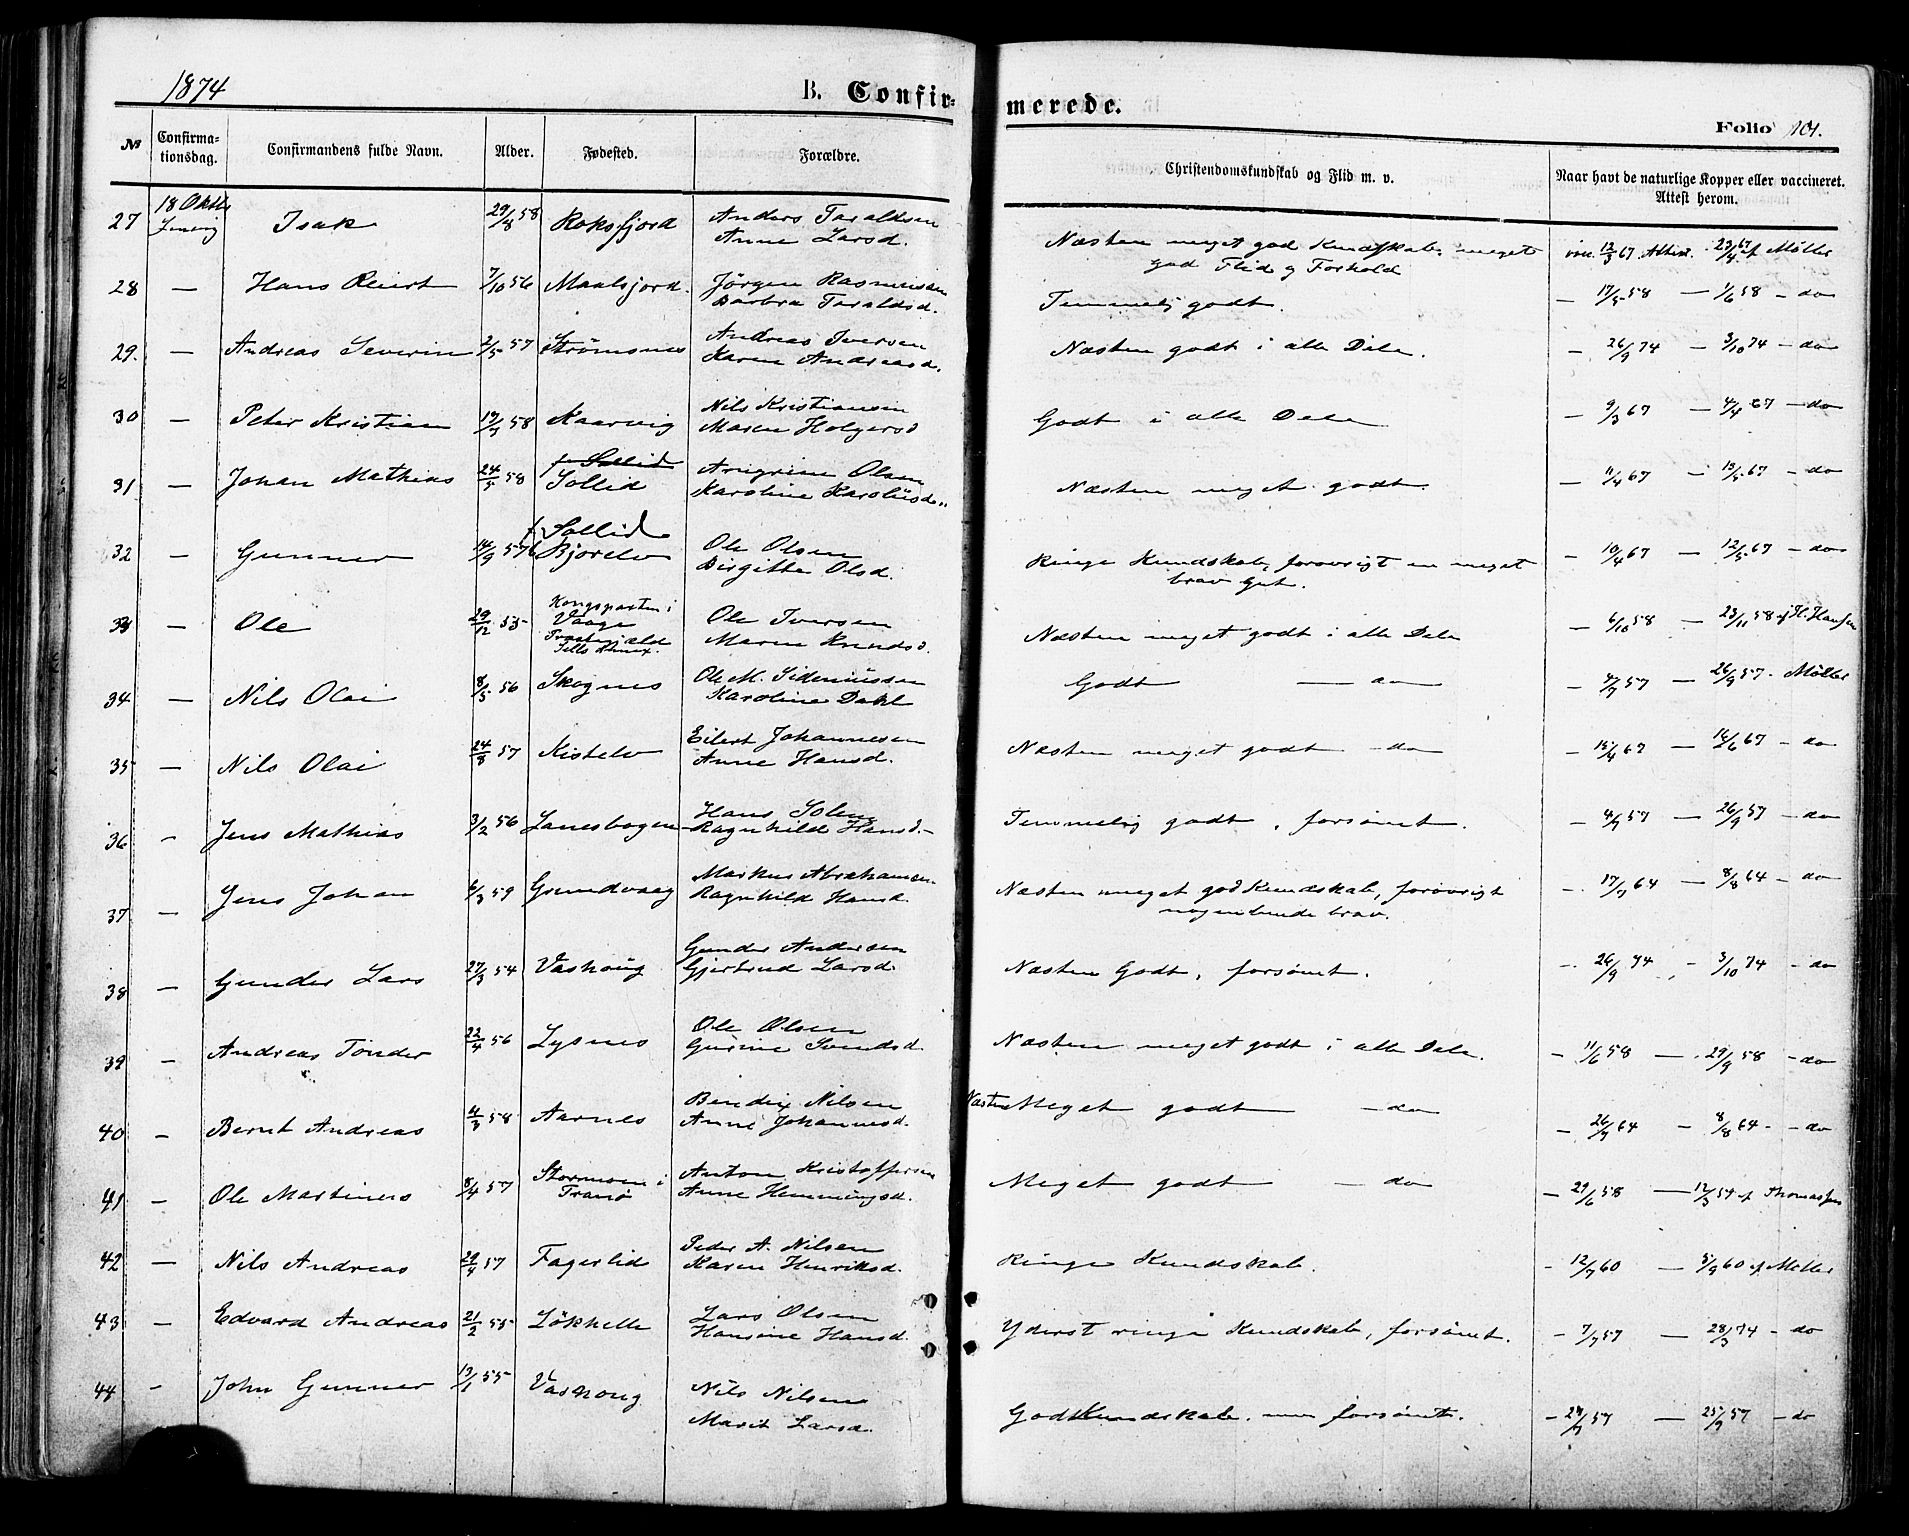 1874
B. Confir-
merede.
Folio 101.
№
Confirma-
tionsdag.
Confirmandens fulde Navn.
Alder.
Fødested.
Forældre.
Christendomskundskab og Flid m. v.
Naar havt de naturlige Kopper eller vaccineret.
Attest herom.
27 18 Oktb Isak 29/8 58 Roksfjord Anders Taraldsen
Anne Larsd.
Næsten meget god Kundskab, meget
god Flid og Forhold
vac. 12/3 67. Attest. 23/4 67 af Møller
28 — Hans Reiert 7/10 56 Maalsjord. Jörgen Rasmussen
Barbra Taraldsd.
Temmelig godt. — 17/5 58 — 1/6 58 — do
29. — Andreas Severin 2/5 57 Strömsnes Andreas Iversen
Karen Andreasd.
Næsten godt i alle Dele. — 26/9 74 — 3/10 74 — do
30 — Peter Kristian 19/7 58 Kaarvig Nils Kristiansen
Maren Holgersd
Godt i alle Dele — 9/3 67 — 4/4 67 — do
31 — Johan Mathias 24/5 58 Sollid Arngrim Olsen
Karoline Karolisd.
Næsten meget godt. — 11/4 67 — 13/5 67 — do
32 — Gunner 14/9 57 Sollid
Bjorelv Ole Olsen
Birgitte Olsd.
Ringe Kundskab, forøvrigt en meget
brav Gut. — 10/4 67 — 12/5 67 — do
33 — Ole 29/12 55 Kongsparten i
Vaage
Ole Iversen
Maren Knudsd.
Næsten meget godt i alle Dele — 6/10 58 — 23/11 58 af H. Hansen
34 — Nils Olai 8/5 56 Skognes Ole M. Sideniussen
Karoline Dahl
Godt — do — 4/7 57 — 26/9 57 - Møller
35 — Nils Olai 24/8 57 Kistelv Eilert Johannesen
Anne Hansd.
Næsten meget godt — do — 15/4 67 — 14/6 67 — do
36 — Jens Mathias 3/2 56 Lanesbogen Hans Solem
Ragnhild Hansd.
Temmelig godt, forsømt. — 4/7 57 — 26/9 57 — do
37 — Jens Johan 6/3 59 Grundvaag Markus Abrahamsen
Ragnhild Hansd.
Næsten meget god Kundskab, forøvrigt
nogenlunde brav. — 17/7 64 — 8/8 64 — do
38 — Gunder Lars 27/3 54 Vashoug Gunder Andersen
Gjertrud Larsd.
Næsten Godt, forsømt. — 26/9 74 — 3/10 74 — do
39 — Andreas Tönder 22/4 56 Lysnes Ole Olsen
Gurine Svendsd.
Næsten meget godt i alle Dele. — 11/6 58 — 29/9 58 — do
40 — Bernt Andreas 4/3 58 Aarnes Bendix Nilsen
Anne Johannesd.
Næsten Meget godt — do — 26/7 64 — 8/8 64 — do
41 — Ole Martinus 8/4 57 Stormoen i
Tranø Anton Kristoffersen
Anne Hemmingsd.
Meget godt — do — 29/6 58 — 12/3 59 af Thomassen
42 — Nils Andreas 29/4 57 Fagerlid Peder A. Nilsen
Karen Henriksd.
Ringe Kundskab. — 12/7 60 — 5/9 60 af Møller
43 — Edvard Andreas 21/2 55 Lökhelle Lars Olsen
Hansine Hansd.
Yderst ringe Kundskab, forsømt. — 7/7 57 — 28/3 74 — do
44 — John Gunner 13/1 55 Vashoug Nils Nilsen
Marit Larsd.
God Kundskab, men forsømt. — 24/7 57 — 25/9 57 — do